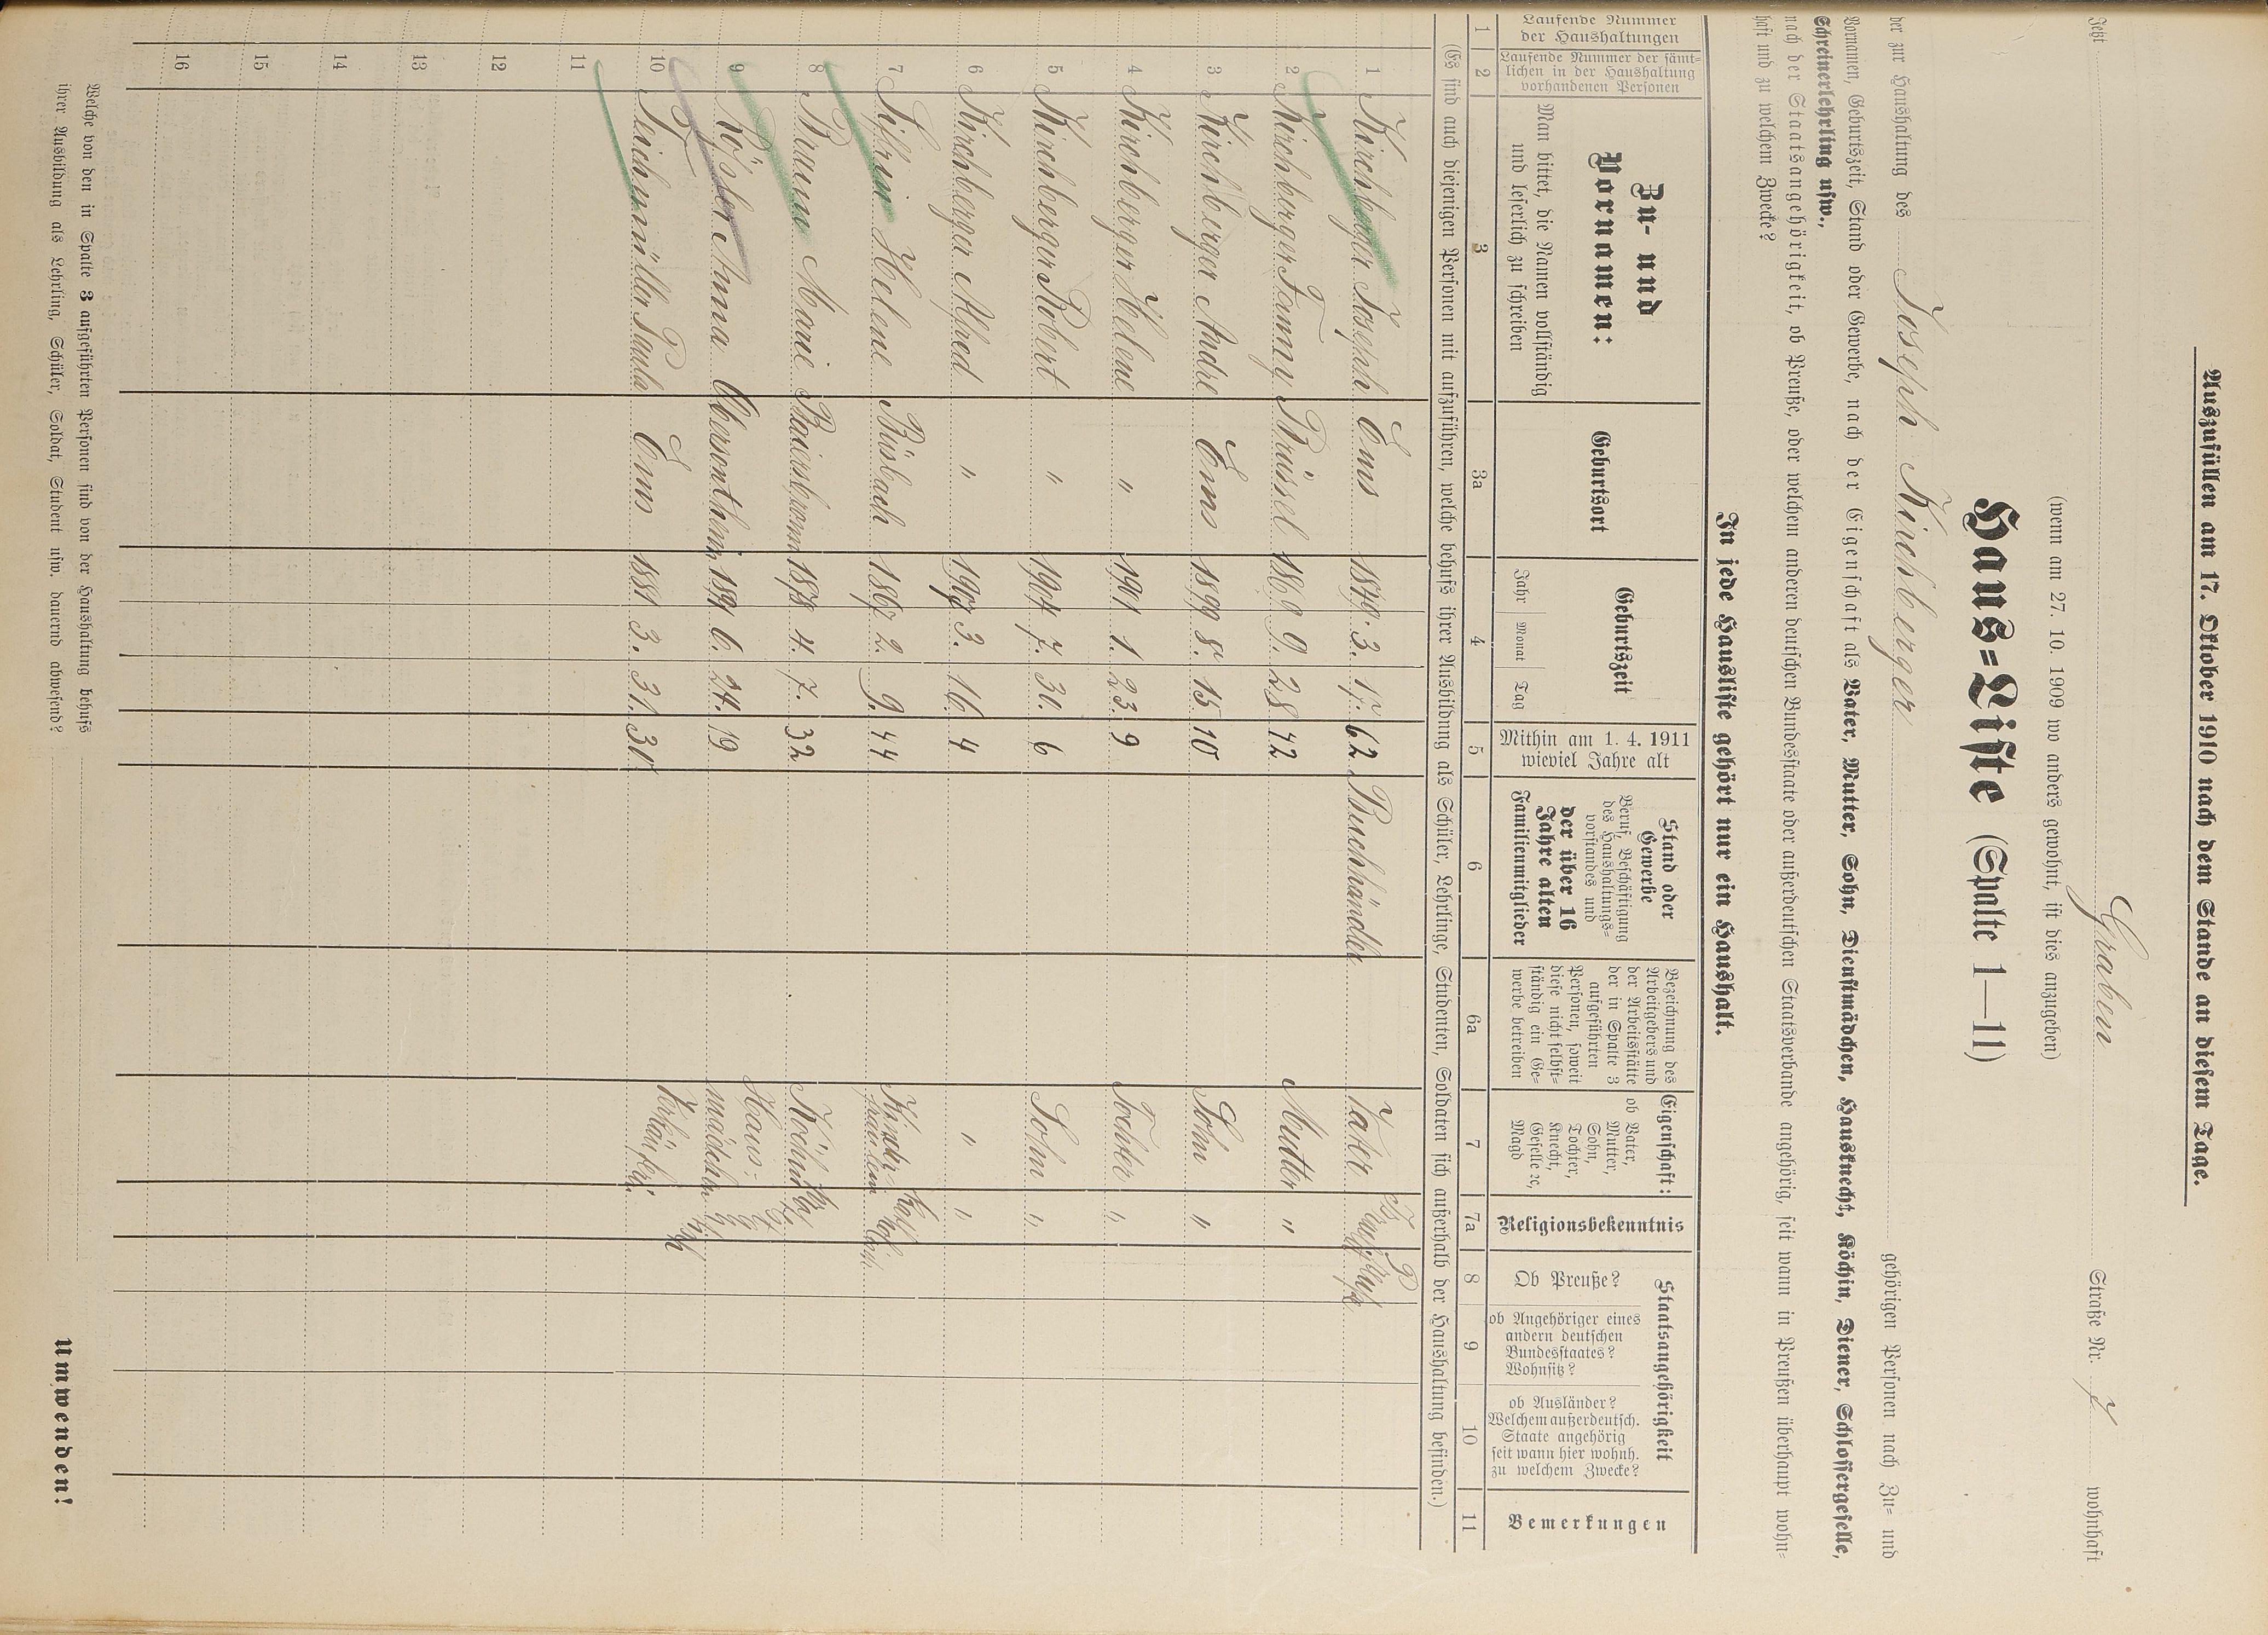 Auszufüllen am 17. Oktober 1910 nach dem Stande an diesem Tage.
Jetzt Graben Straße Nr. 7 wohnhaft
(wenn am 27. 10. 1909 wo anders gewohnt, ist dies anzugeben)
Haus=Liste (Spalte 1—11)
der zur Haushaltung des Joseph Kirchberger gehörigen Personen nach Zu= und
Vornamen, Geburtszeit, Stand oder Gewerbe, nach der Eigenschaft als Vater, Mutter, Sohn, Dienstmädchen, Hausknecht, Köchin, Diener, Schlossergeselle,
Schreinerlehrling usw.,
nach der Staatsangehörigkeit, ob Preuße, oder welchen anderen deutschen Bundesstaate oder außerdeutschen Staatsverbande angehörig, seit wann in Preußen überhaupt wohn=
haft und zu welchem Zwecke?
In jede Hausliste gehört nur ein Haushalt.
Laufende Nummer der Haushaltungen
Laufende Nummer der sämt=lichen in der Haushaltung vorhandenen Personen
Zu- und Vornamen:
Man bittet, die Namen vollständig und leserlich zu schreiben
Geburtsort
Geburtszeit
Jahr Monat Tag
Mithin am 1. 4. 1911 wieviel Jahre alt
Stand oder Gewerbe
Beruf, Beschäftigung des Haushaltungs=vorstandes und
der über 16 Jahre alten Familienmitglieder
Bezeichnung des Arbeitgebers und der Arbeitsstätte der in Spalte 3 aufgeführten Personen, soweit diese nicht selbst=ständig ein Ge=werbe betreiben
Eigenschaft:
ob Vater, Mutter, Sohn, Tochter, Knecht, Geselle ec, Magd
Religionsbekenntnis
Staatsangehörigkeit
Ob Preuße?
ob Angehöriger eines andern deutschen Bundesstaates? Wohnsitz?
ob Ausländer? Welchem außerdeutsch. Staate angehörig seit wann hier wohnh. zu welchem Zwecke?
Bemerkungen
1 2 3 3a 4 5 6 6a 7 7a 8 9 10 11
(Es sind auch diejenigen Personen mit aufzuführen, welche behufs ihrer Ausbildung als Schüler, Lehrlinge, Studenten, Soldaten sich außerhalb der Haushaltung befinden.)
1 Kirchberger Joseph Ems 1849 3. 17. 62 Buchhändler Vater
2 Kirchberger Fanny Brüssel 1869 9. 28 42 Mutter "
3 Kirchberger Andre Ems 1899 8. 15 10 Sohn "
4 Kirchberger Helene " 1901 1. 23. 9 Tochter "
5 Kirchberger Robert " 1904 7. 31. 6 Sohn "
6 Kirchberger Alfred " 1907 3. 16. 4 " "
7 Helene Büsbach 1867 2. 9. 44 Kinderfräulein
8 Braun Marie 1878 4. 7. 32 Köchin
9 Rößler Anna Obersontheim 1891 6. 24. 19 Hausmädchen
10 Teichmüller Paula Ems 1881 3. 31. 30 Verkäuferin
11
12
13
14
15
16
Welche von den in Spalte 3 aufgeführten Personen sind von der Haushaltung behufs
ihrer Ausbildung als Lehrling, Schüler, Soldat, Student usw. dauernd abwesend?
Umwenden!